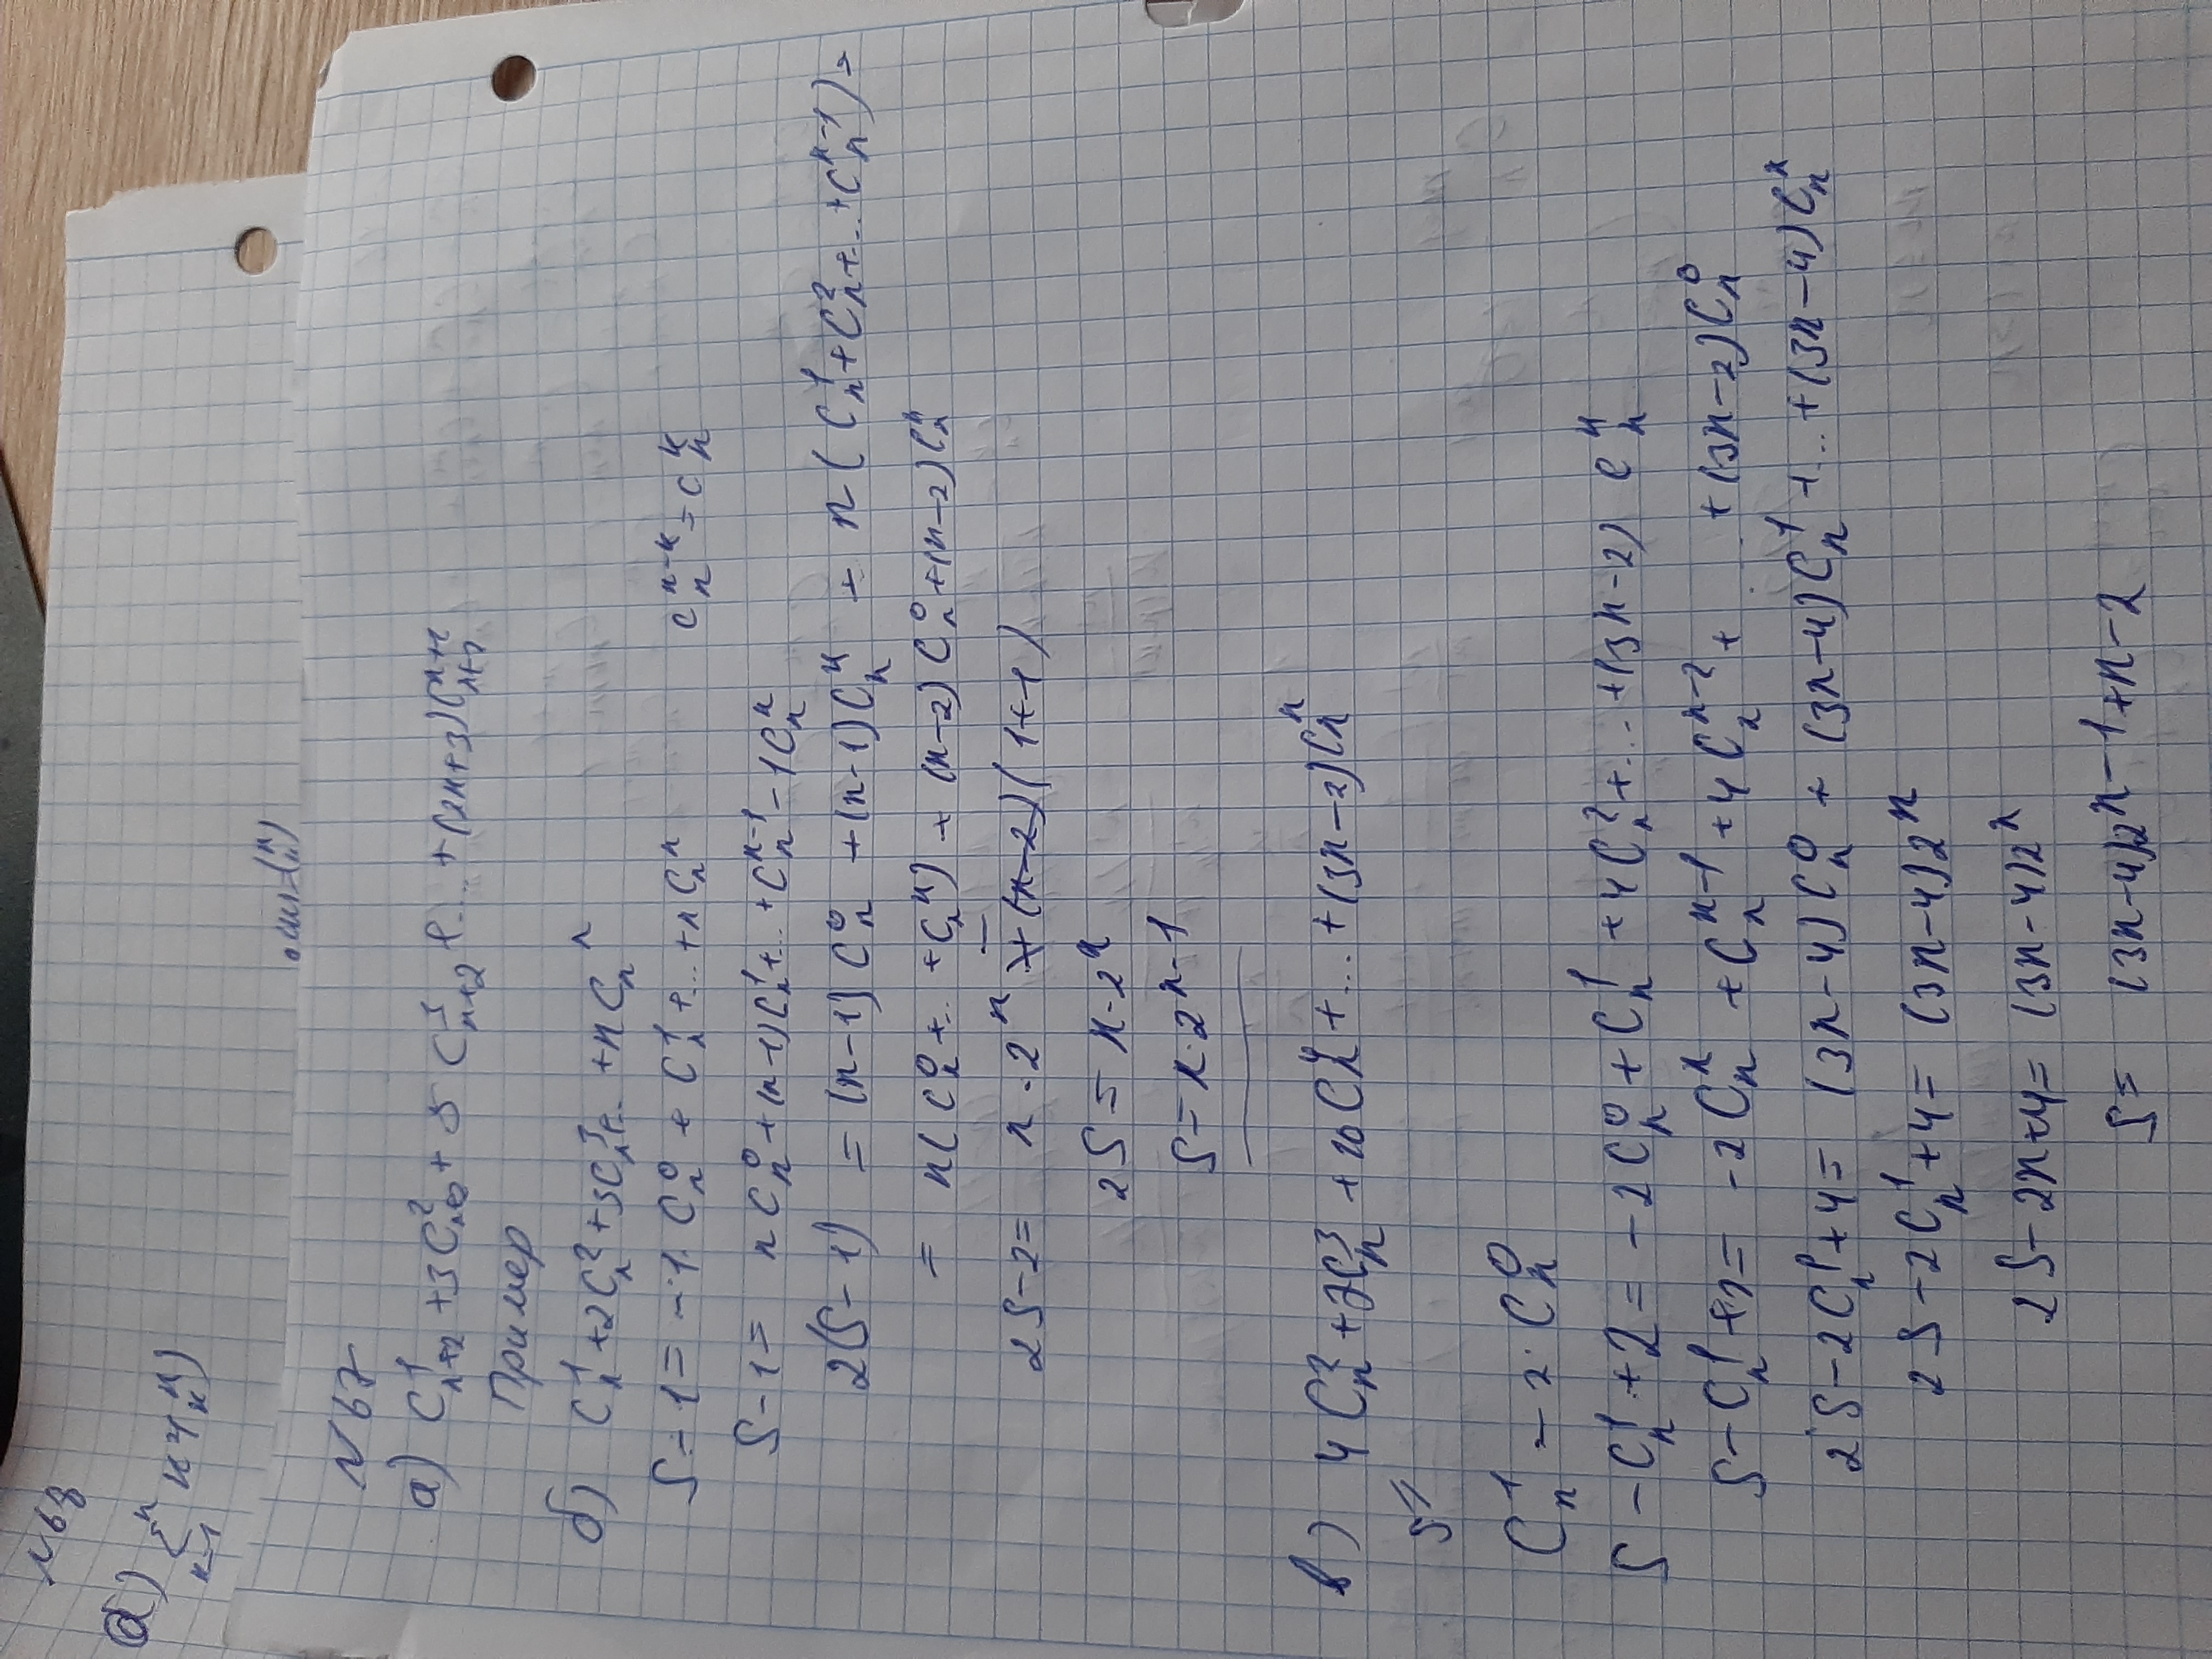 №68
а) Σ_{n-1}^{n}
№67
а) C_{n+2}^{1} + 3C_{n+2}^{2} + 5 C_{n+2}^{3} + ... + (2n+3)C_{n+2}^{n+2}
Пример
б) C_n^1 + 2C_n^2 + 3C_n^3 + .. + nC_n^n
S - 1 = -1. C_n^0 + C_n^1 + ... + nC_n^n C_n^{n-k} = C_n^k
S - 1 = nC_n^0 + (n-1)C_n^1 + .. + C_n^{n-1} - 1C_n^n
2(S - 1) = (n-1)C_n^0 + (n-1)C_n^n + n(C_n^1 + C_n^2 + ... + C_n^{n-1}) =
= n(C_n^0 + .. + C_n^n) + (n-2)C_n^0 + (n-2)C_n^n
2S - 2 = n · 2^n - (1+1)
2S = n · 2^n
S = n · 2^{n-1}
в) 4C_n^2 + 7C_n^3 + 10C_n^4 + ... + (3n-2)C_n^n
S
C_n^1 - 2 · C_n^0
S - C_n^1 + 2 = -2C_n^0 + C_n^1 + 4C_n^2 + ... + (3n-2) C_n^n
S - C_n^1 + 2 = -2C_n^n + C_n^{n-1} + 4C_n^{n-2} + ... + (3n-2)C_n^0
2S - 2C_n^1 + 4 = (3n-4)C_n^0 + (3n-4)C_n^1 + ... + (3n-4)C_n^n
2S - 2C_n^1 + 4 = (3n-4)2^n
2S - 2n + 4 = (3n-4)2^n
S = (3n-4)2^{n-1} + n - 2